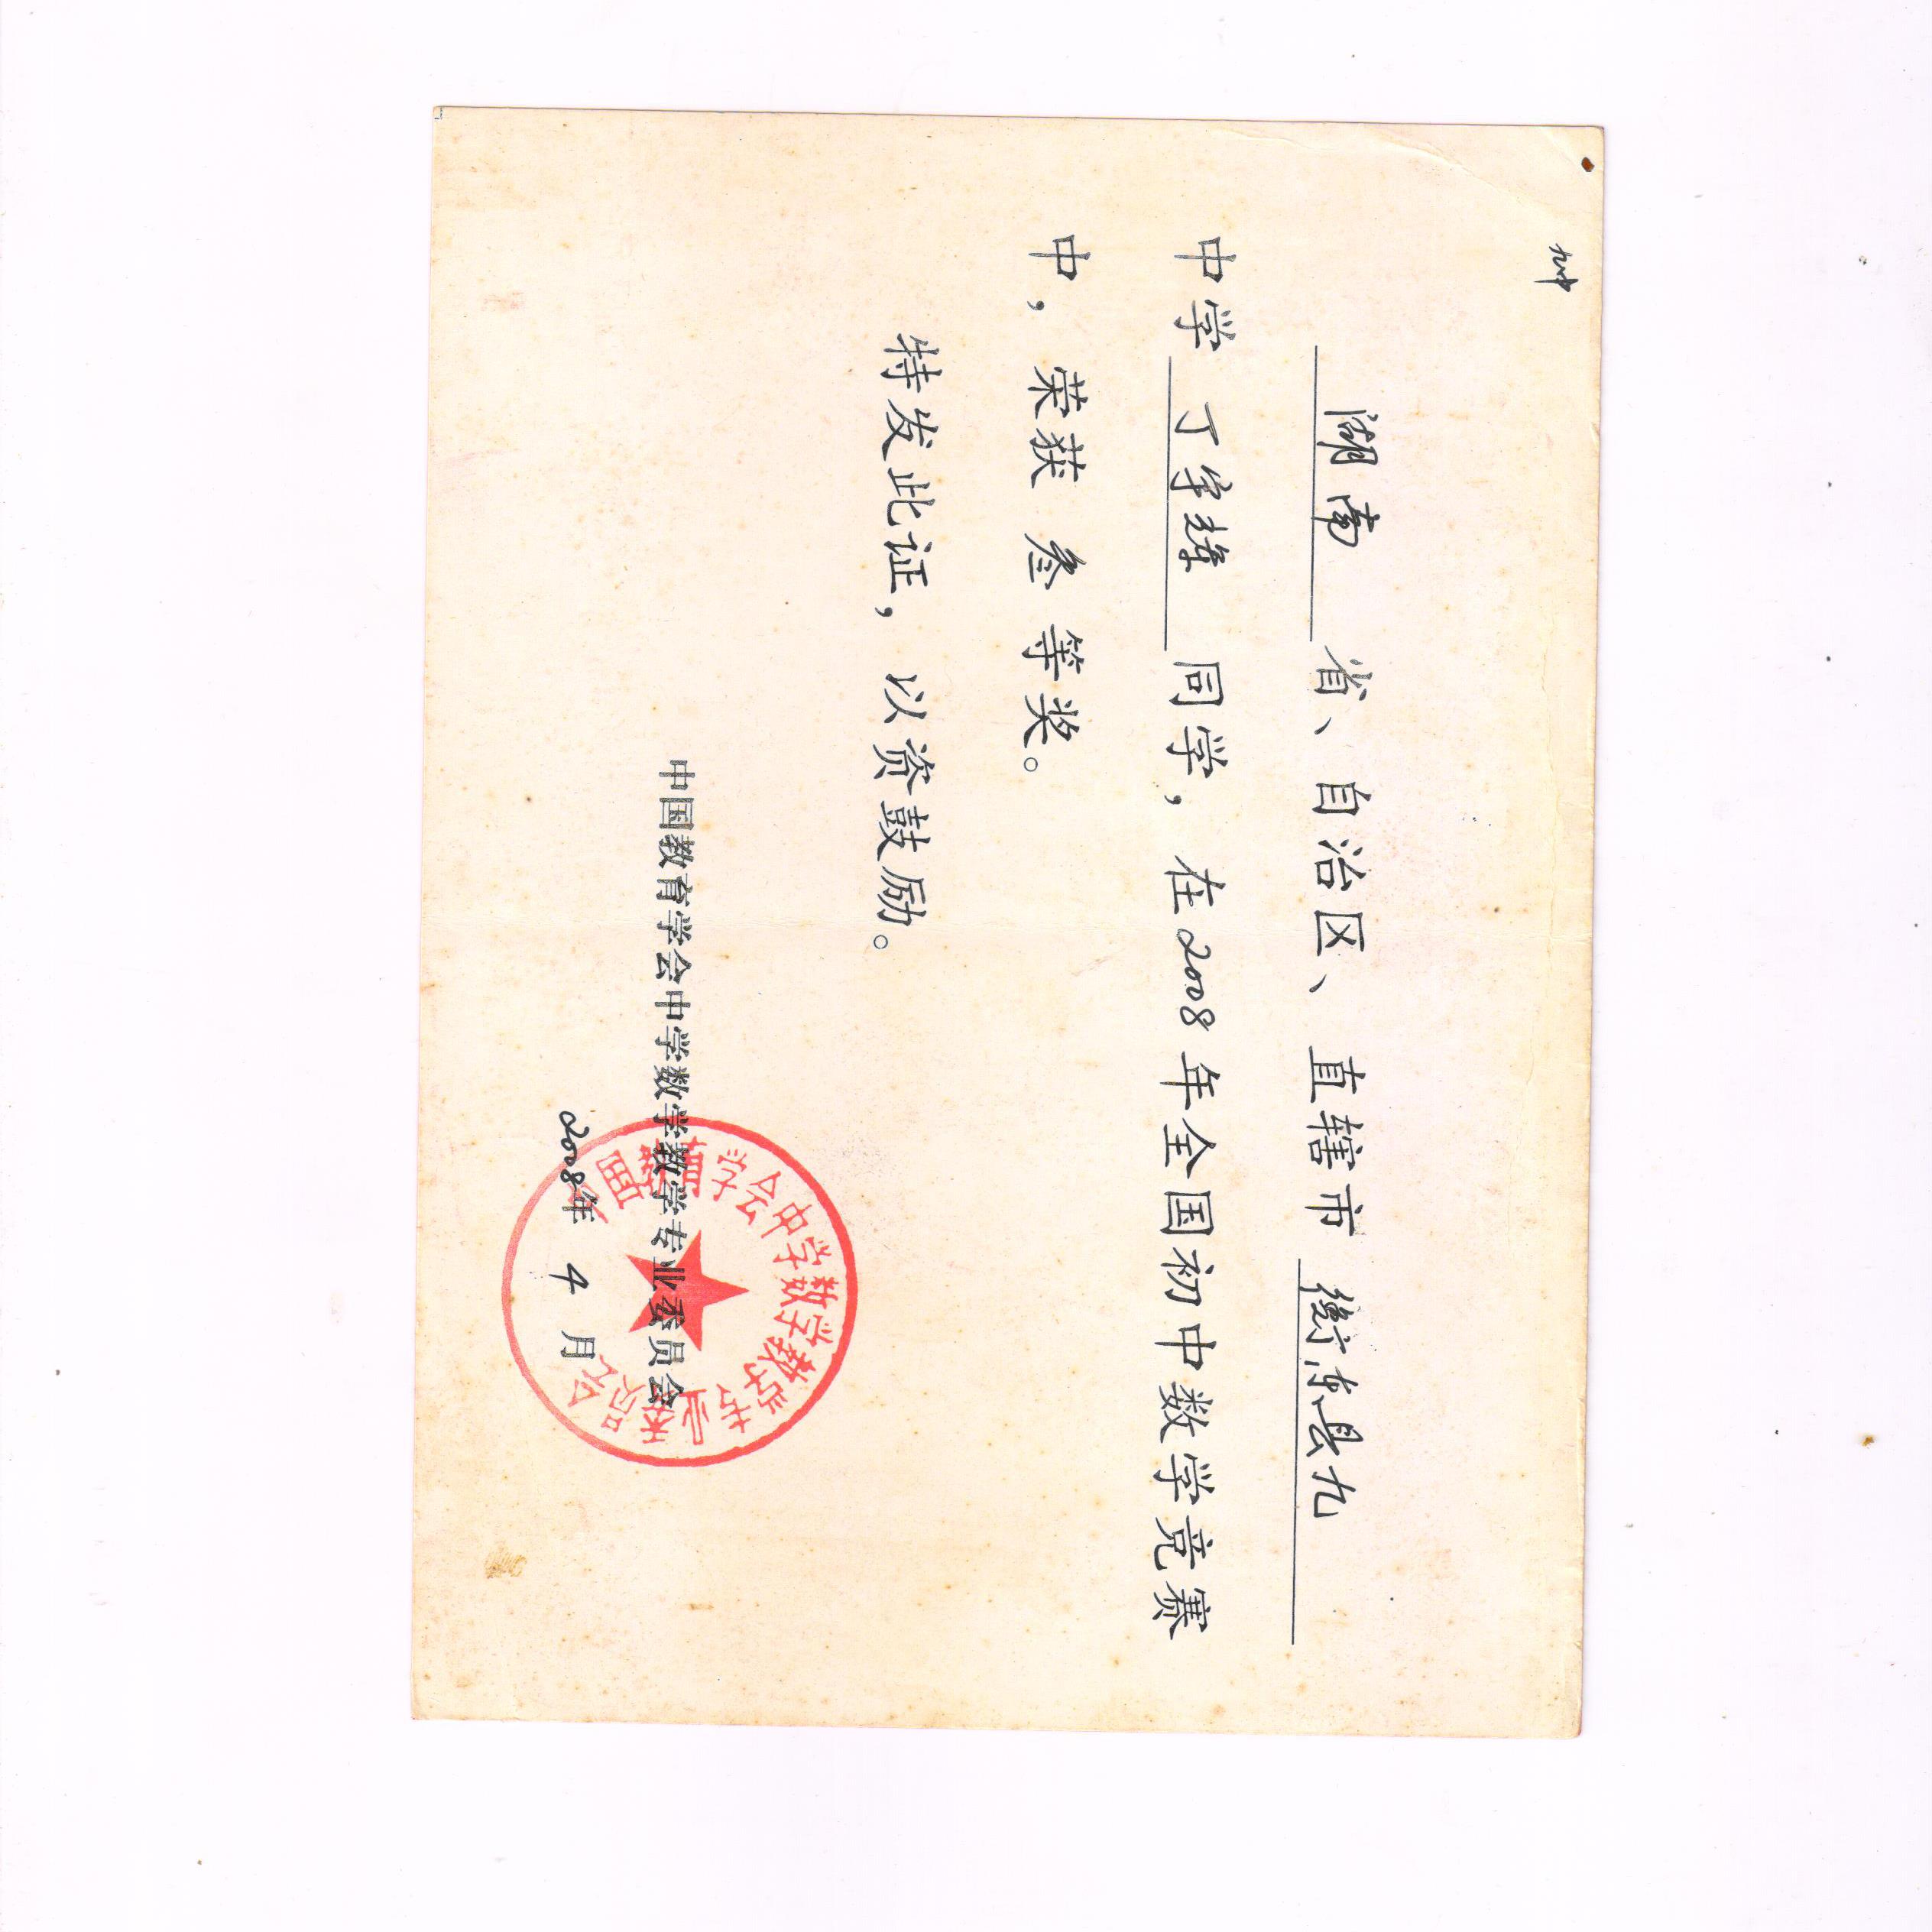 九中
湖南 省、自治区、直辖市 衡东县九
中学 丁字样 同学，在2008年全国初中数学竞赛
中，荣获 叁 等奖。
特发此证，以资鼓励。
中国教育学会中学数学教学专业委员会
2008年 4 月
中国教育学会中学数学教学专业委员会